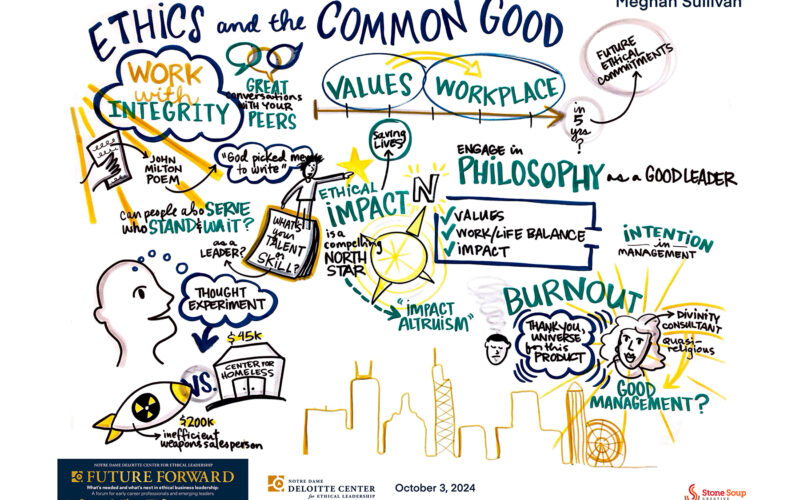 Meghan Sullivan
ETHICS and the COMMON GOOD
WORK
with
INTEGRITY
GREAT
conversations
WITH YOUR
PEERS
VALUES
WORKPLACE
in
5
yrs
?
FUTURE
ETHICAL
COMMITMENTS
JOHN
MILTON
POEM
"God picked me
to write"
can people also SERVE
who STAND & WAIT?
as a
LEADER?
WHAT'S
your
TALENT
or
SKILL?
saving
LIVES
ETHICAL
IMPACT
is a
compelling
NORTH
STAR
N
"IMPACT
ALTRUISM"
ENGAGE in
PHILOSOPHY as a GOOD LEADER
VALUES
WORK/LIFE BALANCE
IMPACT
INTENTION
in
MANAGEMENT
THOUGHT
EXPERIMENT
$45K
CENTER for
HOMELESS
VS.
$200K
inefficient
weapons salesperson
BURNOUT
THANK YOU,
UNIVERSE
for this
PRODUCT
DIVINITY
CONSULTANT
quasi-
religious
GOOD
MANAGEMENT?
NOTRE DAME DELOITTE CENTER FOR ETHICAL LEADERSHIP
FUTURE FORWARD
What's needed and what's next in ethical business leadership:
A forum for early career professionals and emerging leaders
NOTRE DAME
DELOITTE CENTER
for ETHICAL LEADERSHIP
October 3, 2024
Stone Soup
CREATIVE